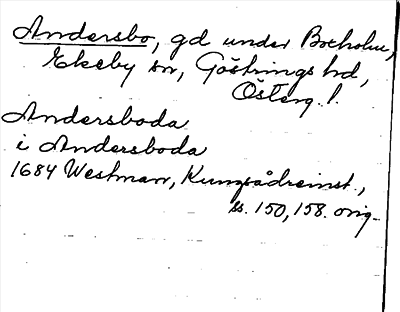 Andersbo, gd under Boxholm,
Ekeby sn, Göstrings hd,
Österg. l.
Andersboda
i Andersboda
1684 Westman, Kungsådreinst.,
ss. 150, 158. orig.